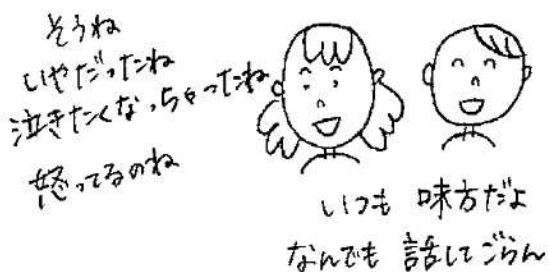 そうね
いやだったね
泣きたくなっちゃったね
怒ってるのね
いつも 味方だよ
なんでも 話してごらん